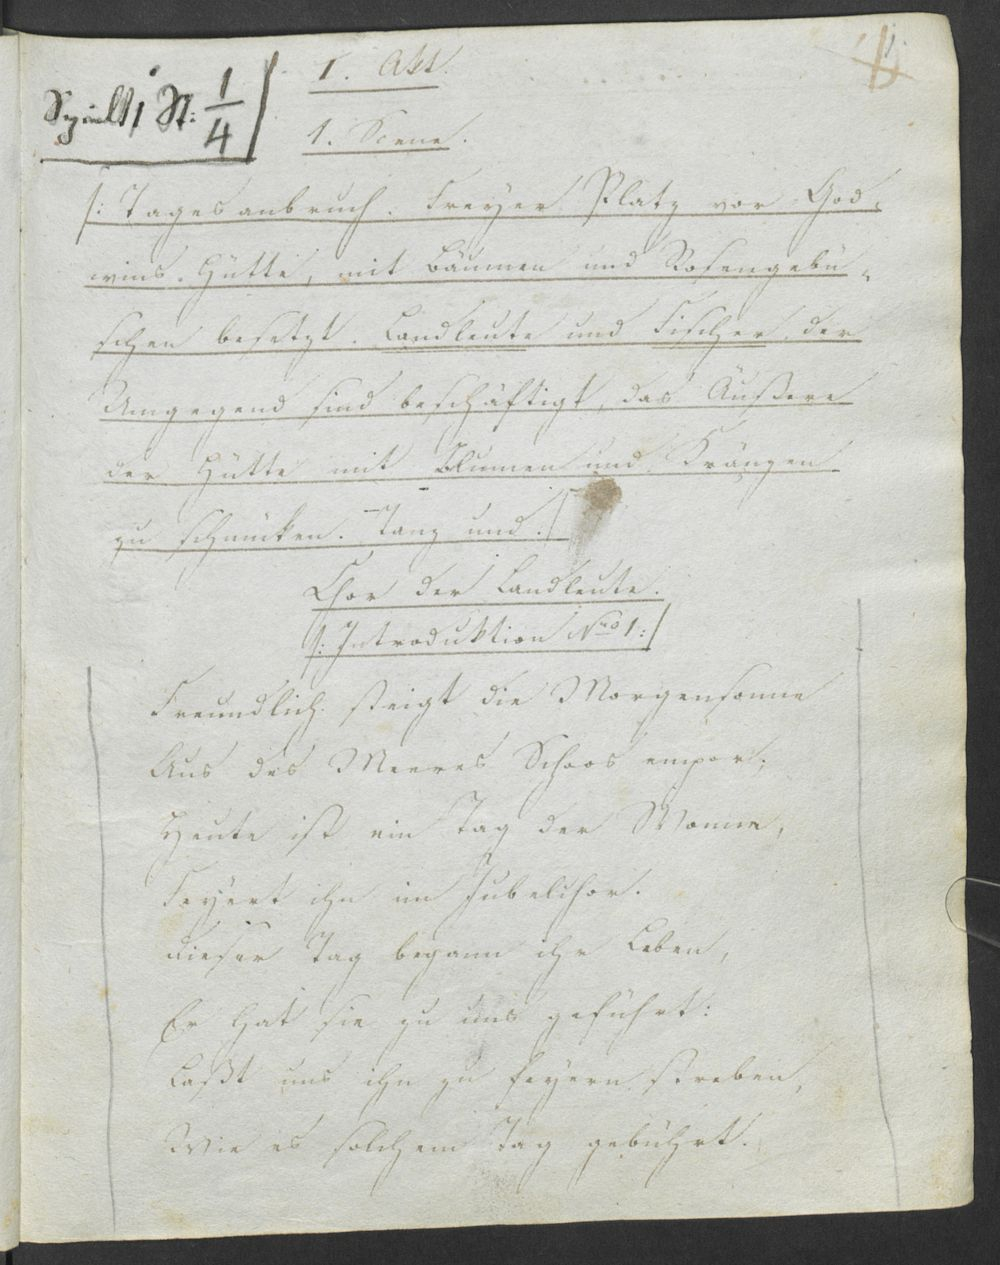 Spielt 1 St: 1/4
I. Akt.
1. Scene.
/: Tagesanbruch. Freyer Platz vor God-
wins Hütte, mit Bäumen und Rosengebü-
schen besetzt. Landleute und Fischer der
Umgegend sind beschäftigt, das Äußere
der Hütte mit Blumen und Kränzen
zu schmücken. Tanz und :/
Chor der Landleute.
/: Introduktion Nro 1 :/
Freundlich steigt die Morgensonne
Aus des Meeres Schoos empor;
Heute ist ein Tag der Wonne,
Feyert ihn im Jubelchor.
Dieser Tag begann ihr Leben,
Er hat sie zu uns geführt:
Laßt uns ihn zu feyern streben,
Wie es solchem Tag gebührt.